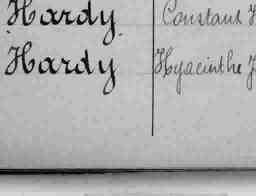 Hardy Constant
Hardy Hyacinthe J